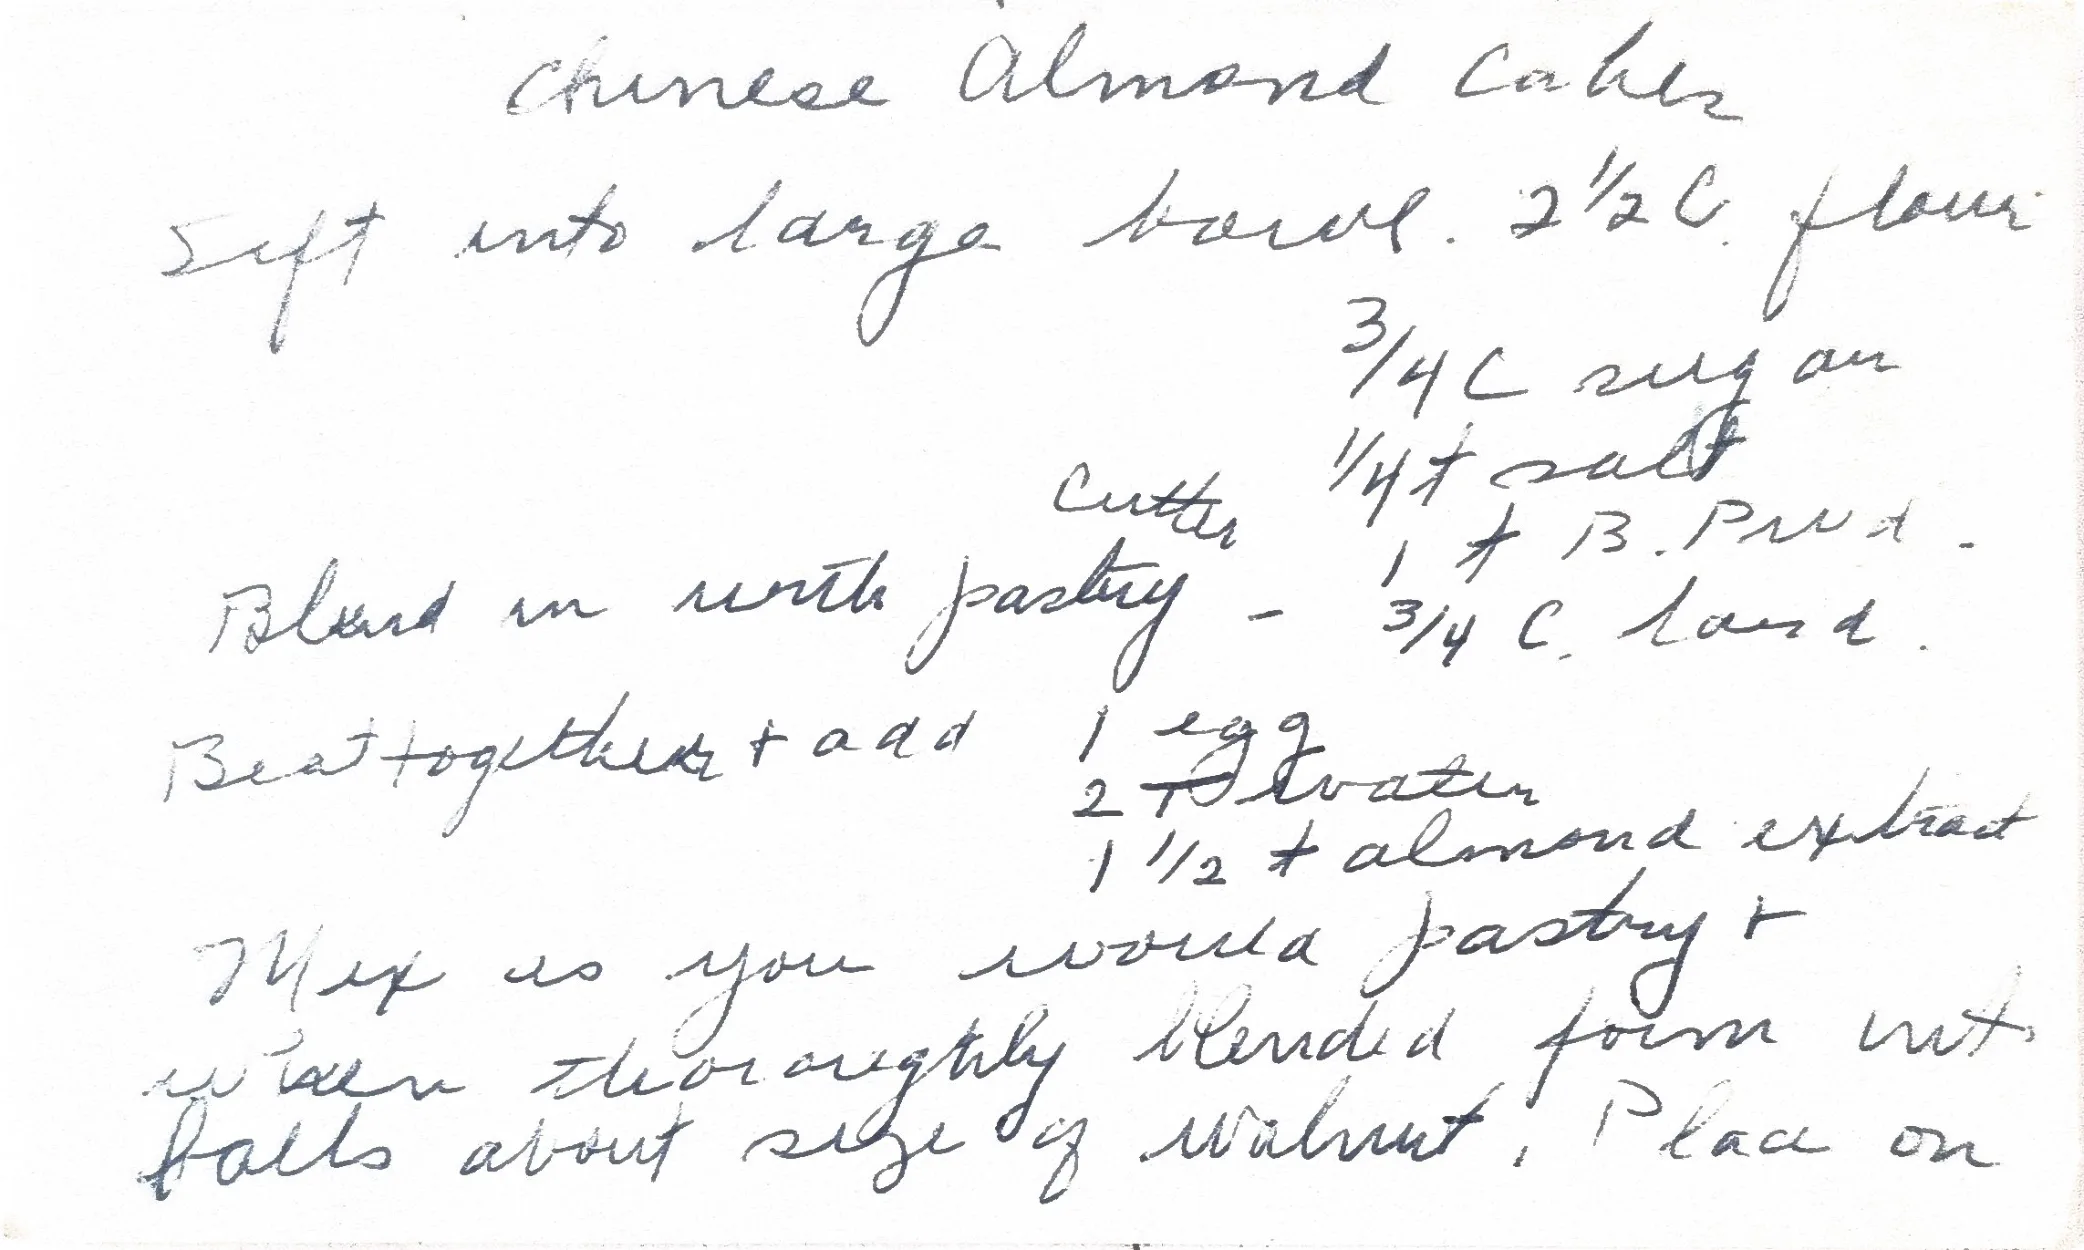 Chinese Almond Cakes
Sift into large bowl. 2 1/2 C. flour
3/4 C sugar
1/4 t salt
1 t B. Pwd.
Blend in with pastry cutter - 3/4 C. lard.
Beat together + add 1 egg
2 T water
1 1/2 t almond extract
Mix as you would pastry +
when thoroughly blended form into
balls about size of walnut. Place on